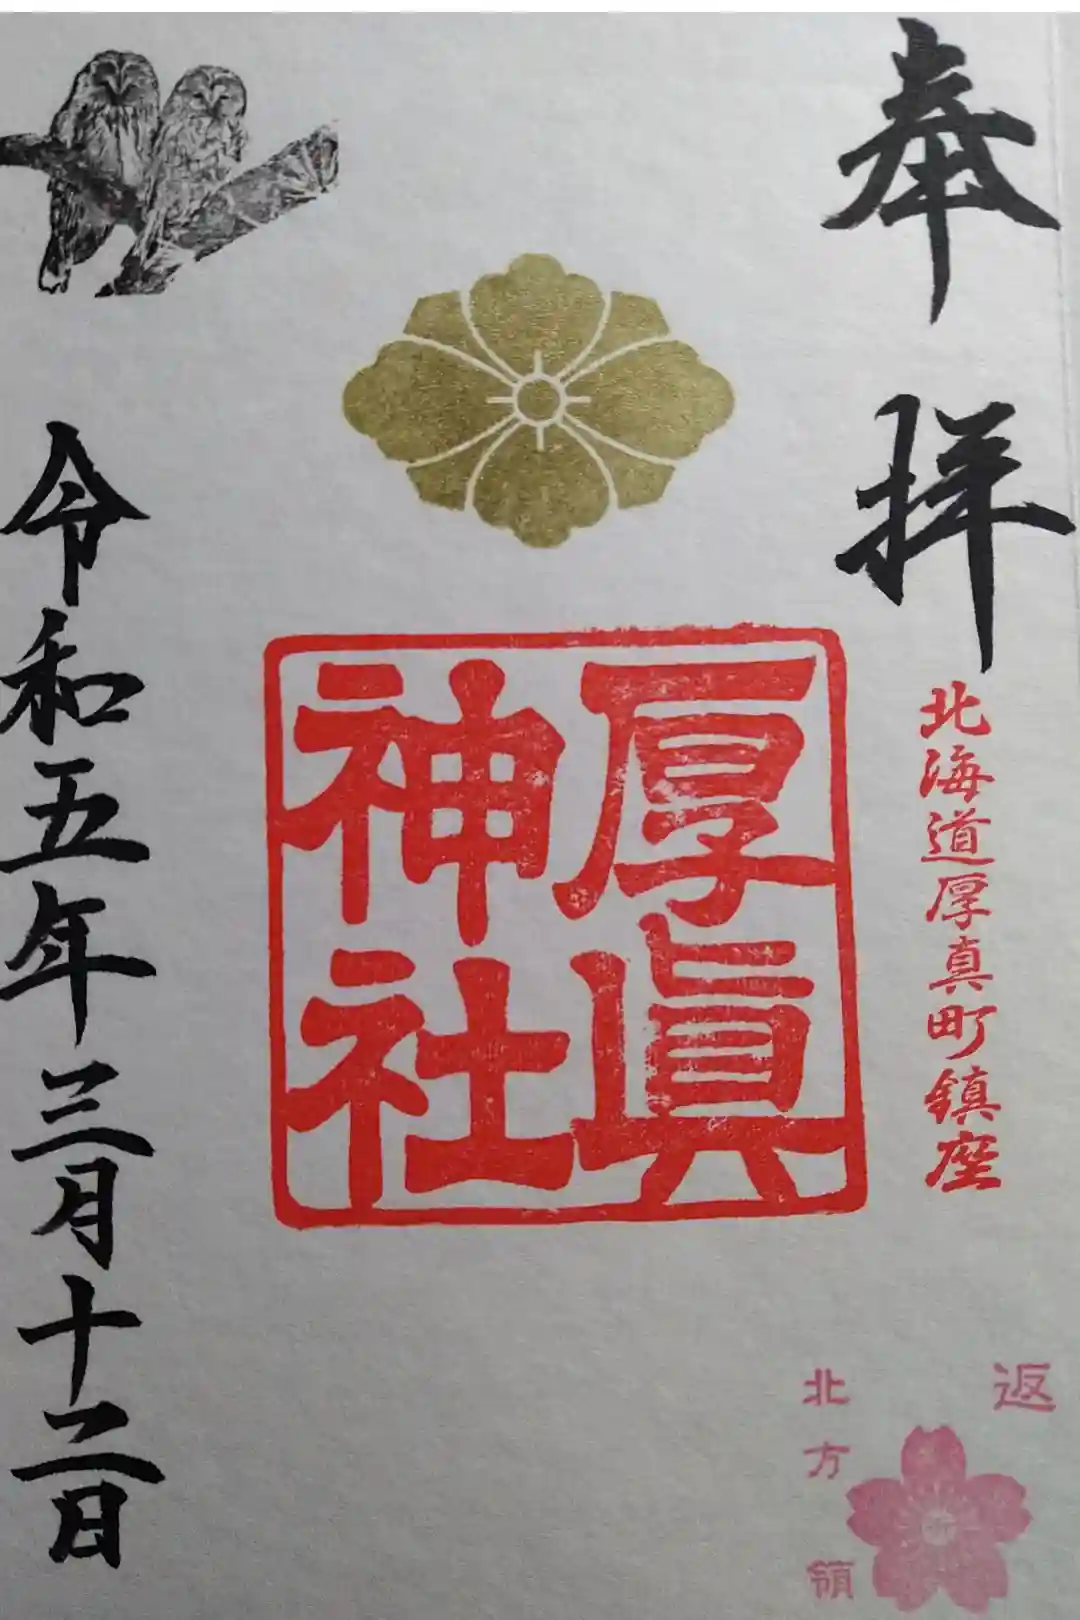 奉拝
北海道厚真町鎮座
厚眞
神社
令和五年三月十二日
返
北方領